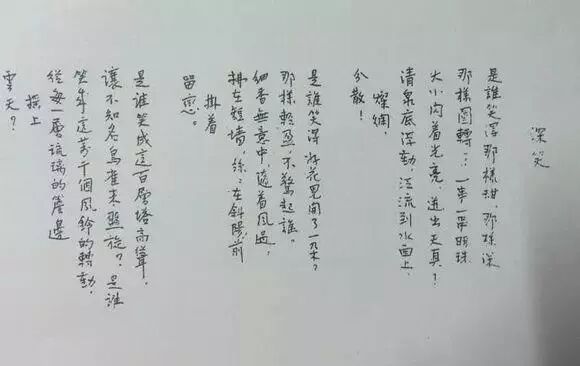 深笑
是誰笑得那樣甜，那樣深
那樣圓轉？一串一串明珠
大小閃着光亮，迸出天真！
清泉底浮動，泛流到水面上，
燦爛，
分散！
是誰笑得好花兒開了一朵？
那樣輕盈，不驚起誰。
細香無意中，隨着風過，
拂在短墻，絲絲在斜陽前
掛着
留戀。
是誰笑成這百層塔高聳，
讓不知名鳥雀來盤旋？是誰
笑成這萬千個風鈴的轉動，
從每一層琉璃的簷邊
搖上
雲天？